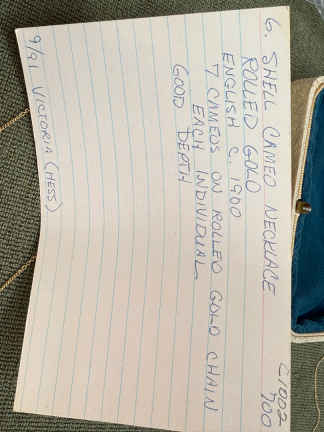 6. SHELL CAMEO NECKLACE
ROLLED GOLD
ENGLISH C. 1900
7 CAMEOS ON ROLLED GOLD CHAIN
EACH INDIVIDUAL
GOOD DEPTH
9/91 VICTORIA (HESS)
C1002
700